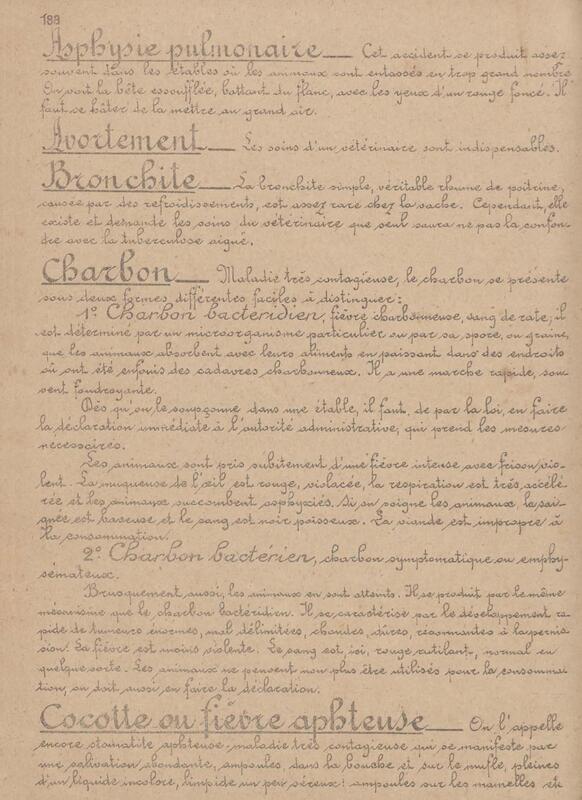 188
Asphysie pulmonaire — Cet accident se produit assez
souvent dans les étables où les animaux sont entassés en trop grand nombre
On voit la bête essoufflée, battant du flanc, avec les yeux d'un rouge foncé. Il
faut se hâter de la mettre au grand air.
Avortement — Les soins d'un vétérinaire sont indispensables.
Bronchite — La bronchite simple, véritable rhume de poitrine,
causée par des refroidissements, est assez rare chez la vache. Cependant, elle
existe et demande les soins du vétérinaire que seul saura ne pas la confon-
dre avec la tuberculose aiguë.
Charbon — Maladie très contagieuse, le charbon se présente
sous deux formes différentes faciles à distinguer:
1º Charbon bactéridien, fièvre charbonneuse, sang de rate; il
est déterminé par un microorganisme particulier ou par sa spore, ou graine,
que les animaux absorbent avec leurs aliments en paissant dans des endroits
où ont été enfouis des cadavres charbonneux. Il a une marche rapide, sou-
vent foudroyante.
Dès qu'on le soupçonne dans une étable, il faut, de par la loi, en faire
la déclaration immédiate à l'autorité administrative, qui prend les mesures
necessaires.
Les animaux sont pris subitement d'une fièvre intense avec frison vio-
lent. La muqueuse de l'œil est rouge, violacée, la respiration est très accélé-
rée et les animaux succombent asphyxiés. Si on soigne les animaux la sai-
gnée est baveuse et le sang est noir poisseux. La viande est impropre à
la consommation.
2º Charbon bactérien, charbon symptomatique ou emphy-
sémateux.
Brusquement aussi, les animaux en sont atteints. Il se produit par le même
mécanisme que le charbon bactéridien. Il se caractérise par le développement ra-
pide de tumeurs énormes, mal délimitées, chaudes, dûres, résonnantes à la percus-
sion. La fièvre est moins violente. Le sang est, ici, rouge rutilant, normal en
quelque sorte. Les animaux ne peuvent non plus être utilisés pour la consomma-
tion, on doit aussi en faire la déclaration.
Cocotte ou fièvre aphteuse — On l'appelle
encore stomatite aphteuse: maladie très contagieuse qui se manifeste par
une salivation abondante, ampoules dans la bouche et sur le mufle, pleines
d'un liquide incolore, limpide un peu séreux: ampoules sur les mamelles et